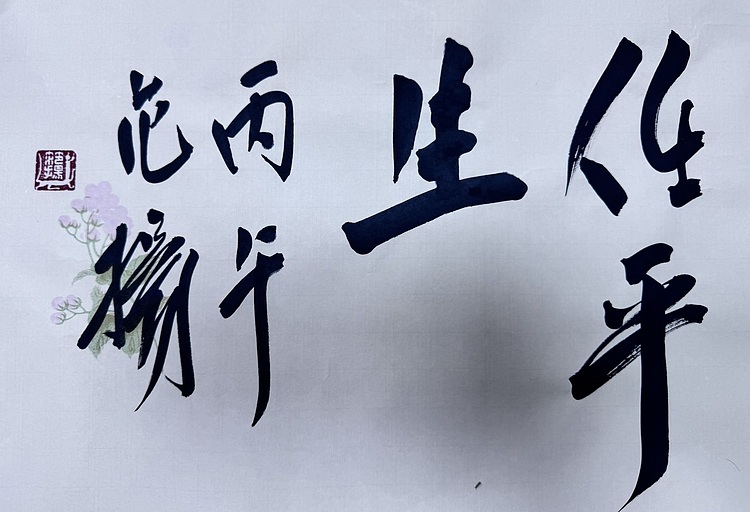 任平
生
丙午
范揚